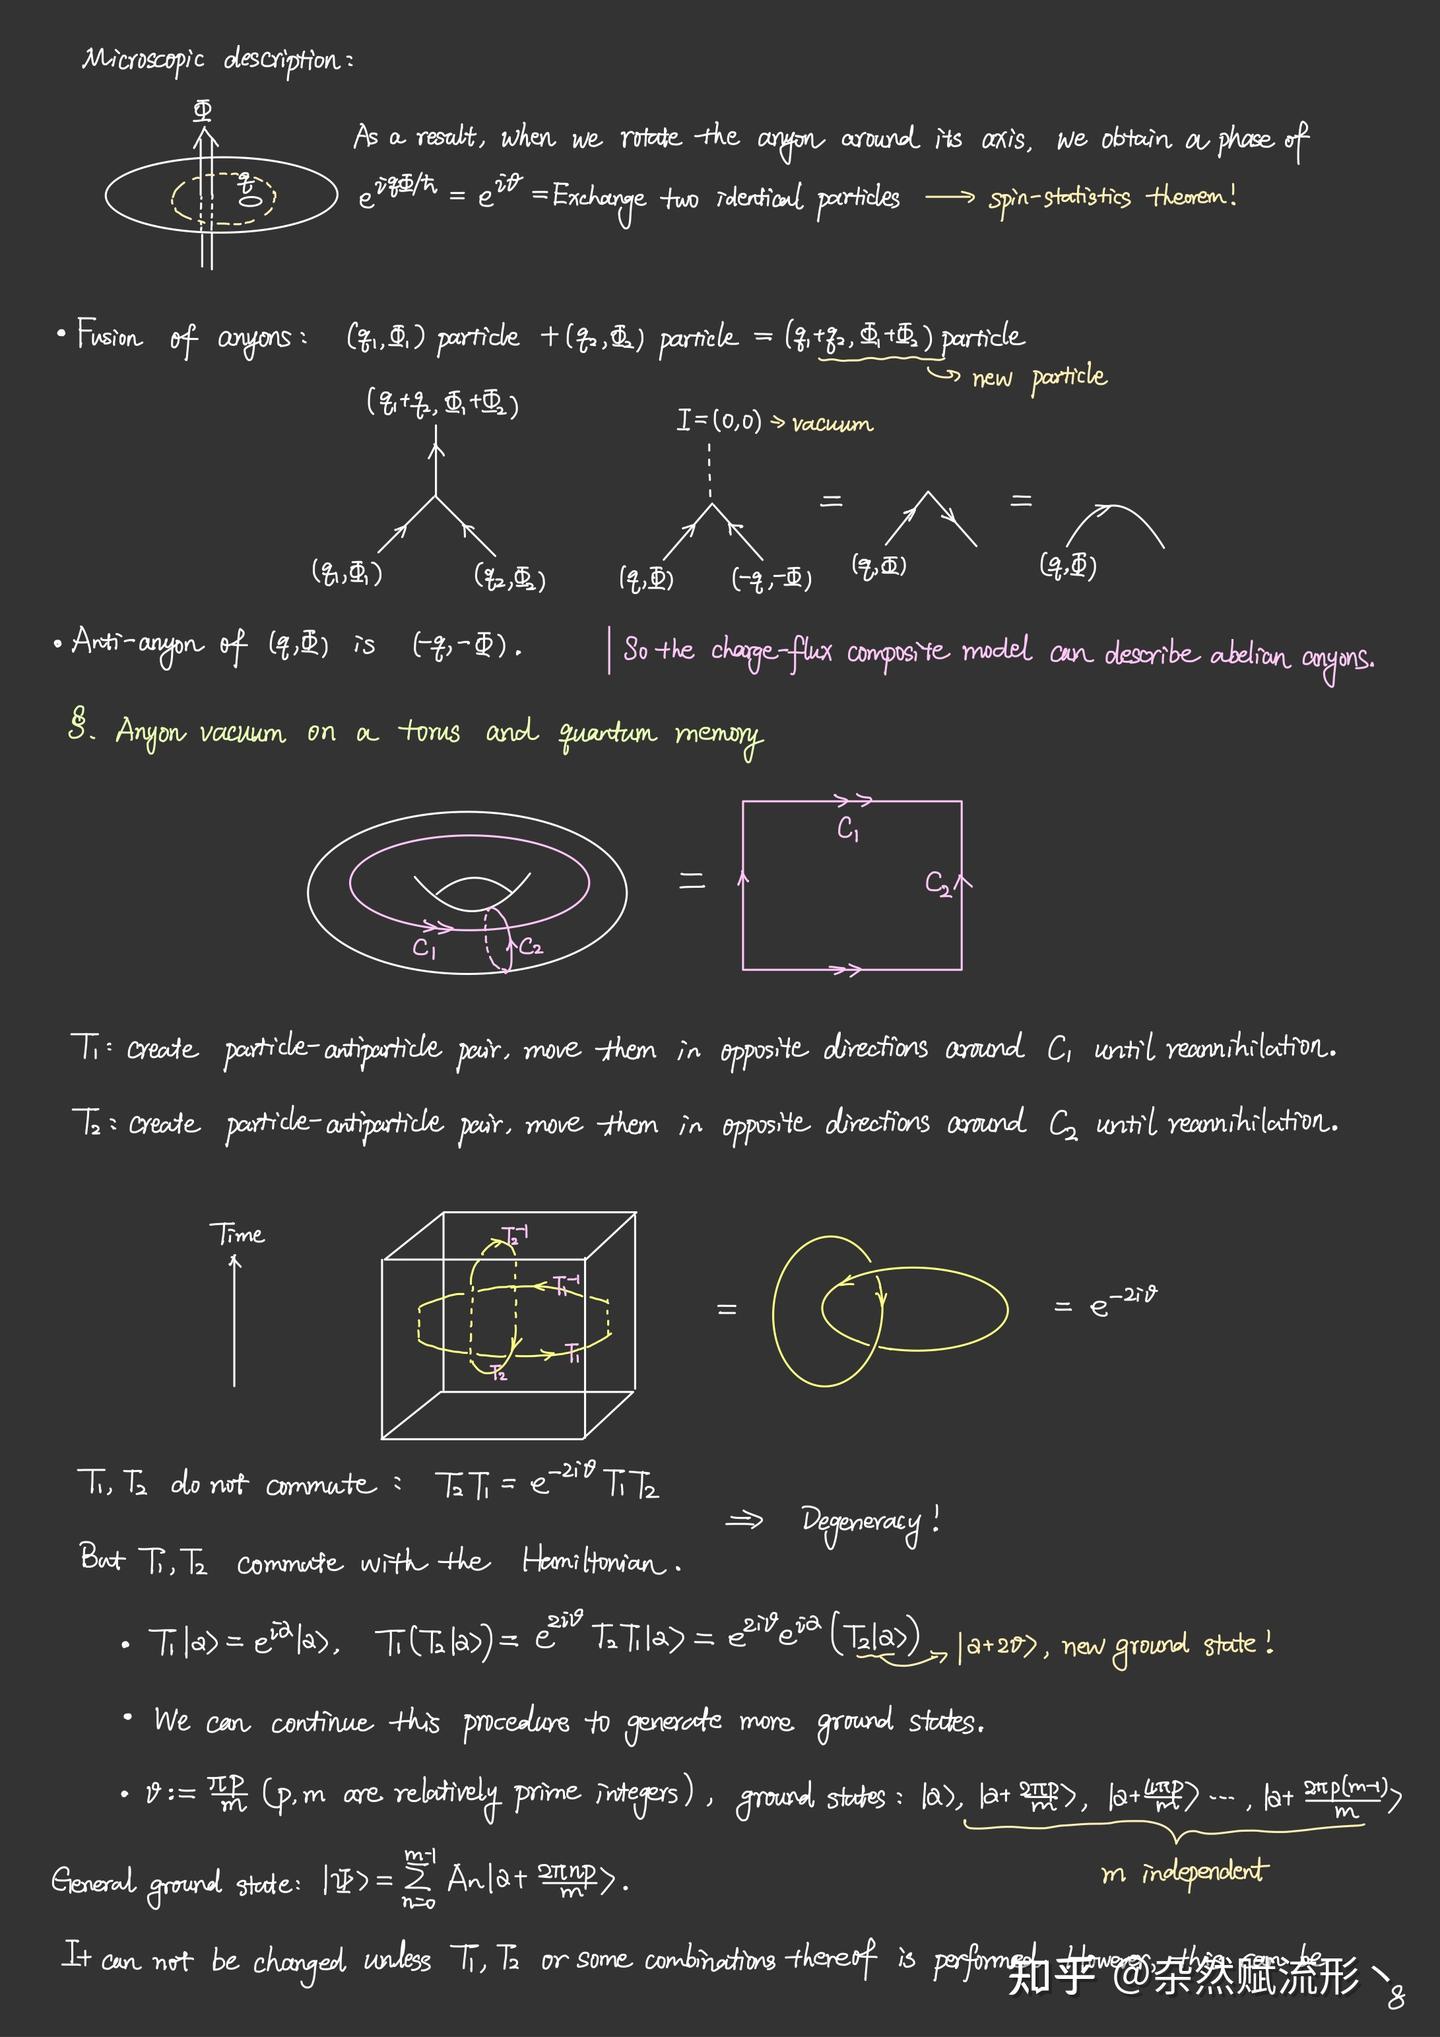 Microscopic description:
Φ
q
As a result, when we rotate the anyon around its axis, we obtain a phase of
e^{iqΦ/ħ} = e^{iϑ} = Exchange two identical particles ⟶ spin-statistics theorem!
• Fusion of anyons: (q₁,Φ₁) particle + (q₂,Φ₂) particle = (q₁+q₂, Φ₁+Φ₂) particle
↪ new particle
(q₁+q₂, Φ₁+Φ₂)
I=(0,0) → vacuum
= =
(q₁,Φ₁) (q₂,Φ₂) (q,Φ) (-q,-Φ) (q,Φ) (q,Φ)
• Anti-anyon of (q,Φ) is (-q,-Φ). | So the charge-flux composite model can describe abelian anyons.
§. Anyon vacuum on a torus and quantum memory
C₁
=
C₂
C₁ C₂
T₁: create particle-antiparticle pair, move them in opposite directions around C₁ until reannihilation.
T₂: create particle-antiparticle pair, move them in opposite directions around C₂ until reannihilation.
Time
T₂⁻¹
T₁⁻¹
= = e^{-2iϑ}
T₁
T₂
T₁, T₂ do not commute: T₂T₁ = e^{-2iϑ} T₁T₂
⇒ Degeneracy!
But T₁, T₂ commute with the Hamiltonian.
• T₁|a⟩ = e^{ia}|a⟩, T₁(T₂|a⟩) = e^{2iϑ} T₂T₁|a⟩ = e^{2iϑ}e^{ia}(T₂|a⟩) → |a+2ϑ⟩, new ground state!
• We can continue this procedure to generate more ground states.
• ϑ := πp/m (p, m are relatively prime integers), ground states: |a⟩, |a+2πp/m⟩, |a+4πp/m⟩ ⋯, |a+2πp(m-1)/m⟩
m independent
General ground state: |Ψ⟩ = ∑_{n=0}^{m-1} An|a+2πnp/m⟩.
It can not be changed unless T₁, T₂ or some combinations thereof is performed. However, this can be
知乎 @杂然赋流形丶
8